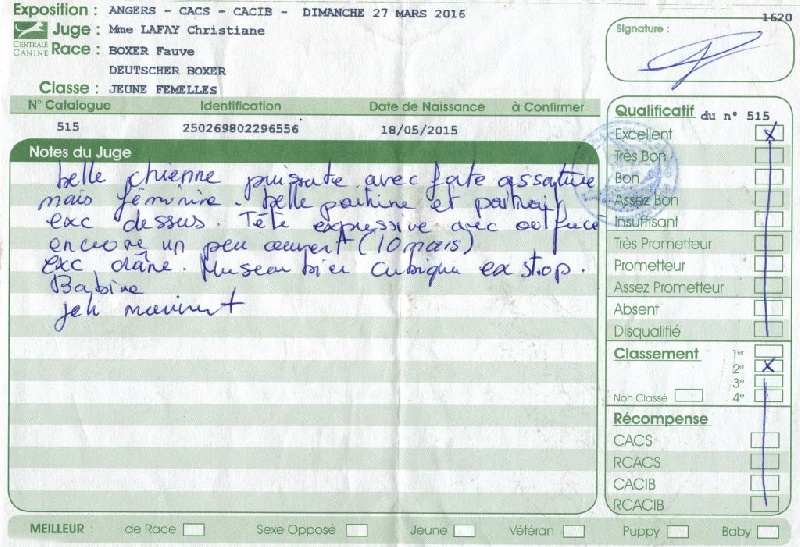 Exposition : ANGERS - CACS - CACIB - DIMANCHE 27 MARS 2016
1620
CENTRALE CANINE
Juge : Mme LAFAY Christiane
Race : BOXER Fauve
DEUTSCHER BOXER
Classe : JEUNE FEMELLES
Signature :
N° Catalogue Identification Date de Naissance à Confirmer
515 250269802296556 18/05/2015
Notes du Juge
belle chienne puissante avec forte ossature
mais féminine. belle poitrine et poitrail
exc dessus. Tête expressive avec
encore un peu ouvert (10 mois)
exc crâne. Museau bien cubique ex stop.
Babine
Jeh mouvmt
Qualificatif du n° 515
Excellent X
Très Bon
Bon
Assez Bon
Insuffisant
Très Prometteur
Prometteur
Assez Prometteur
Absent
Disqualifié
Classement 1er
2e X
3e
Non Classé 4e
Récompense
CACS
RCACS
CACIB
RCACIB
MEILLEUR : de Race Sexe Opposé Jeune Vétéran Puppy Baby